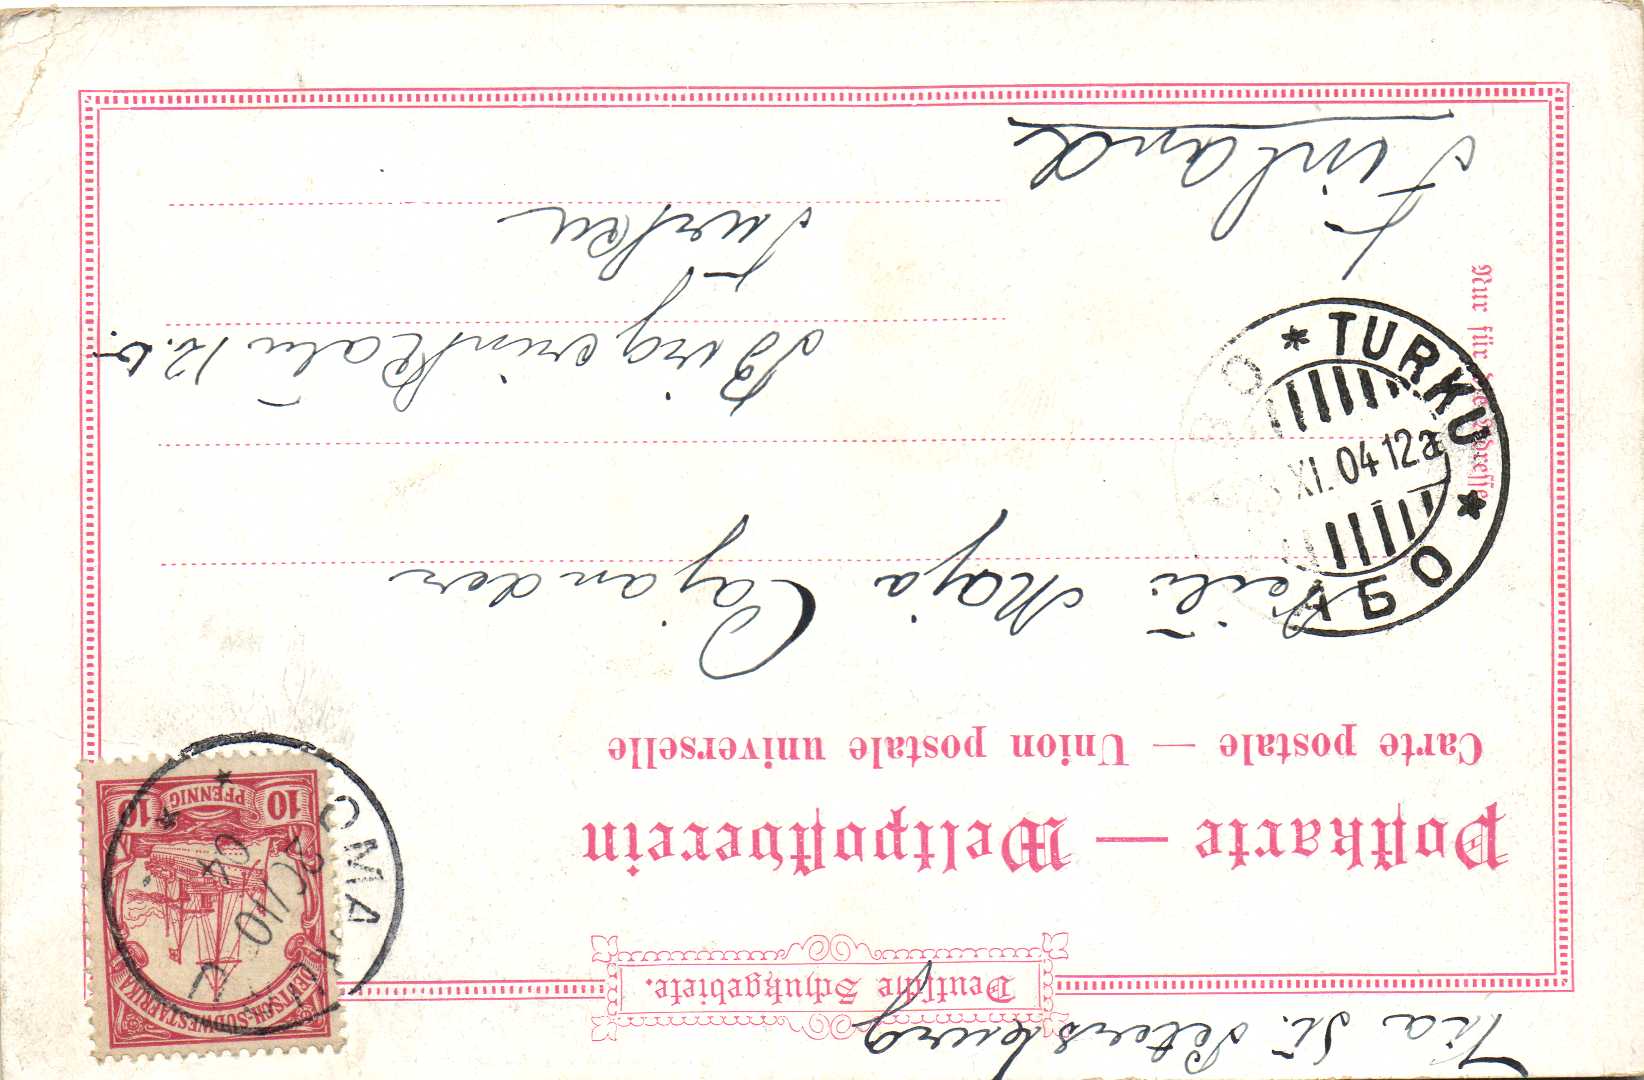 Via St. Petersburg
Deutsche Schutzgebiete.
Postkarte — Weltpostverein
Carte postale — Union postale universelle
Maja Cajander
Birgerinkatu 12.b.
Turku
Finland
Nur für die Adresse
DEUTSCH-SÜDWESTAFRIKA
10 PFENNIG 10
OMARURU
20/10
04
* TURKU *
XI.04 12a
АБО